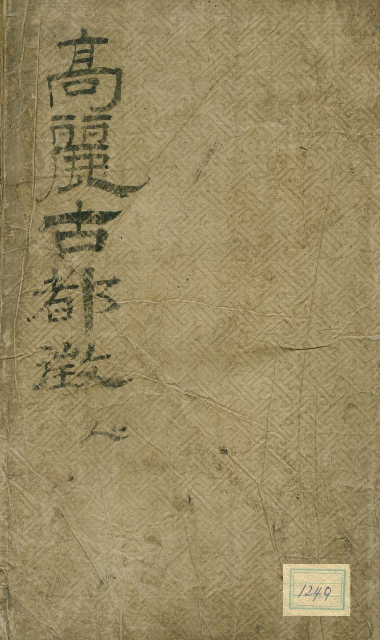 高麗古都徵
1249